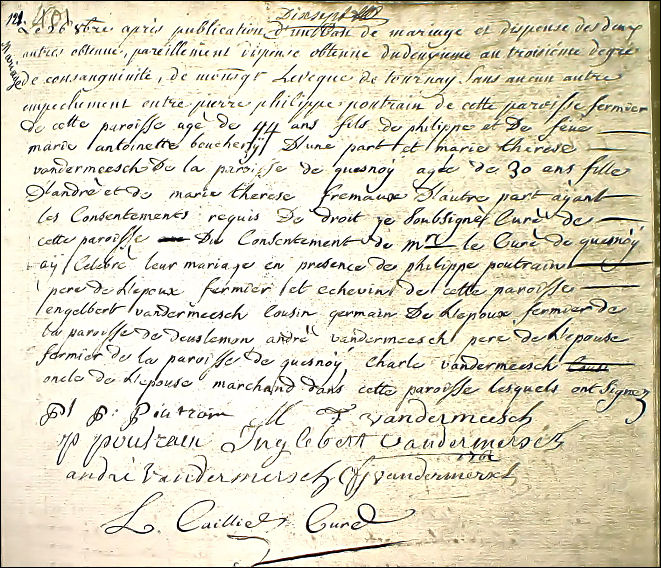 121. 401
Le 26 9bre après publication d'un Ban de mariage et dispense des deux
mariage
autres obtenue, pareillement dispense obtenue du deuxieme au troisieme degré
de consanguinité, de monsigr Leveque de tournay. Sans aucun autre
empechement entre pierre philippe poutrain de cette paroisse fermier
de cette paroisse agé de 44 ans fils de philippe et De feüe
marie antoinette bouchery D'une part et marie therese
vandermeesch De la paroisse de quesnoÿ agée de 30 ans fille
D'andré et de marie therese fremaux D'autre part aÿant
les Consentements requis De droit je soubsigné Curé de
cette paroisse Du Consentement de mr le Curé de quesnoÿ
aÿ Celebré leur mariage en presence de philippe poutrain
pere de L'epoux fermier et echevin de cette paroisse
engelbert vandermeesch Cousin germain De L'epoux fermier de
la paroisse de deuslemon andré vandermeesch pere de L'epouse
fermier de la paroisse de quesnoÿ, Charle vandermeesch
oncle de L'epouse marchand dans cette paroisse lesquels ont Signez
pl p: poutrain M T vandermeesch
p poutrain Inglebert vandermersch
andré vandermersch vandermersch
L. Cailliet Curé